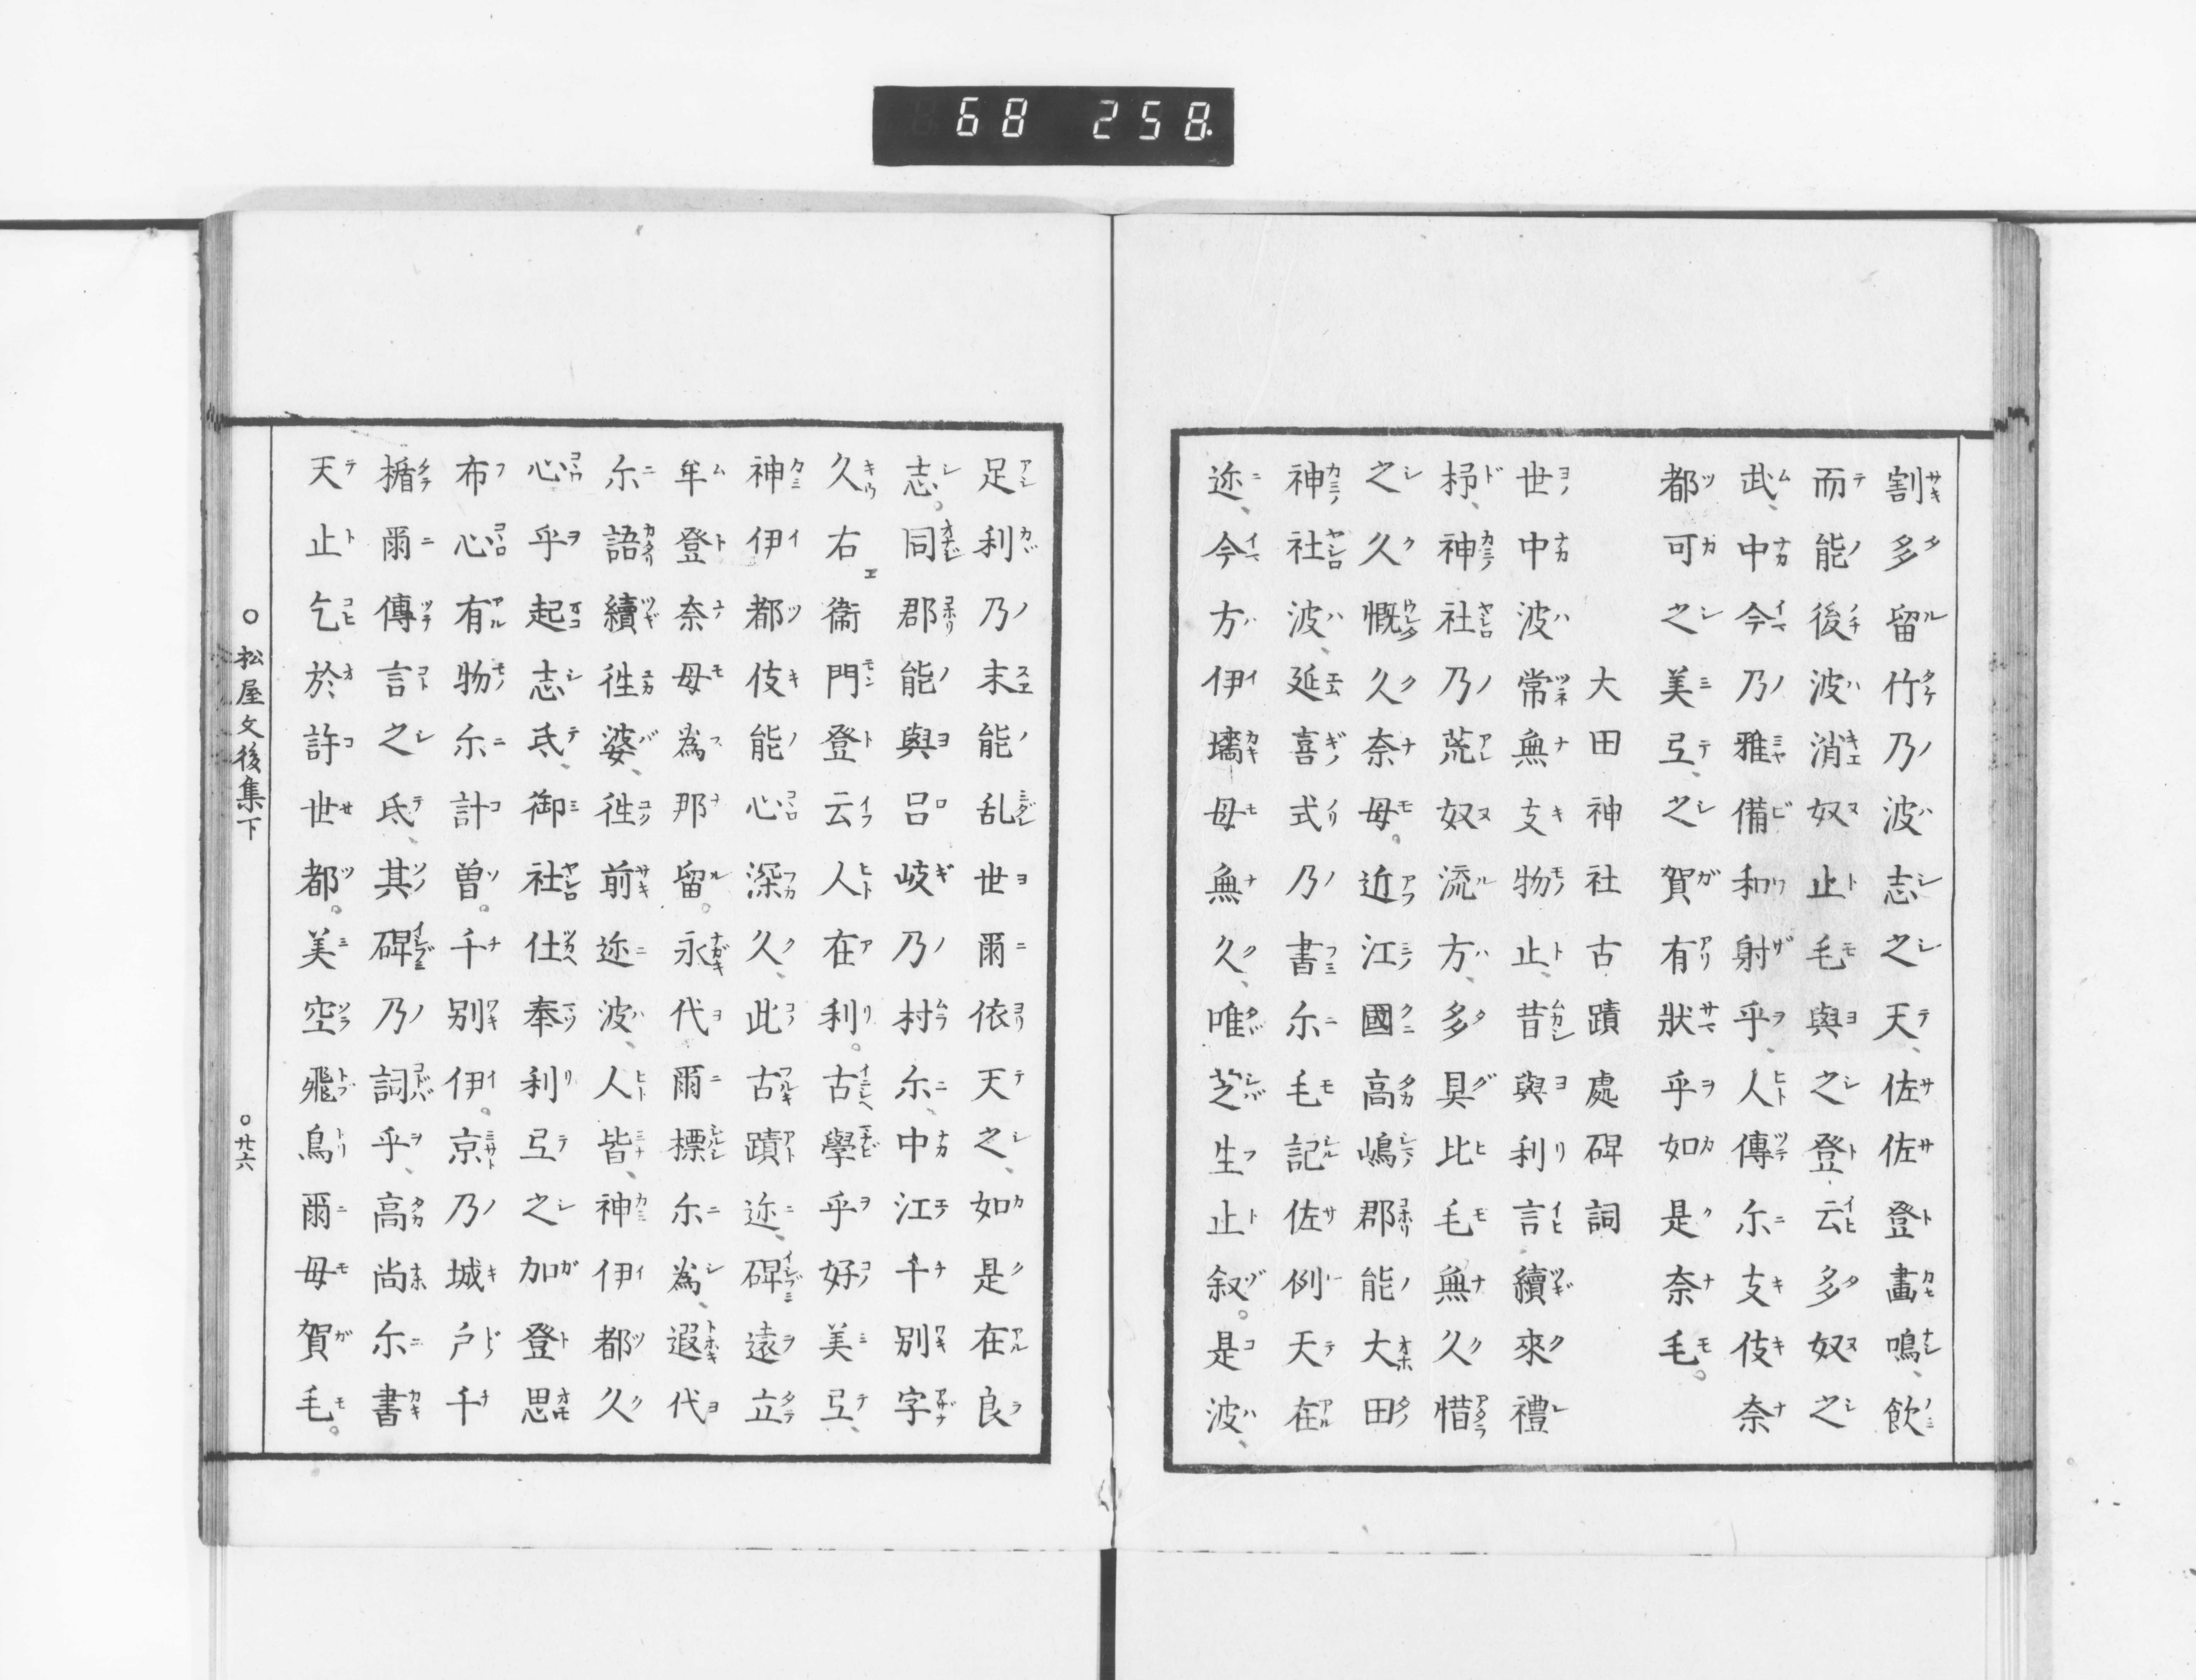 68 258.
割多留竹乃波志之天、佐佐登畵鳴、飲
而能後波消奴止毛與之登、云多奴之
武、中今乃雅備和射乎、人傳尓支伎奈
都可之美弖、之賀有狀乎如是奈毛。
大田神社古蹟處碑詞
世中波常無支物止、昔與利言續來禮
杼、神社乃荒奴流方、多具比毛無久惜
之久慨久奈母。近江國高嶋郡能大田
神社波、延喜式乃書尓毛記佐例天在
迩、今方伊墻母無久、唯芝生止叙。是波、
足利乃末能乱世爾依天之、如是在良
志。同郡能與呂岐乃村尓、中江千別字
久右衛門登云人在利。古學乎好美弖、
神伊都伎能心深久、此古蹟迩、碑遠立
牟登奈母為那留。永代爾標尓為、遐代
尓語續徃婆、徃前迩波、人皆、神伊都久
心乎起志氐、御社仕奉利弖之加登思
布心有物尓計曽。千別伊。京乃城戸千
楯爾傳言之氐、其碑乃詞乎、高尚尓書
天止乞於許世都。美空飛鳥爾母賀毛。
○松屋文後集下
○廿六